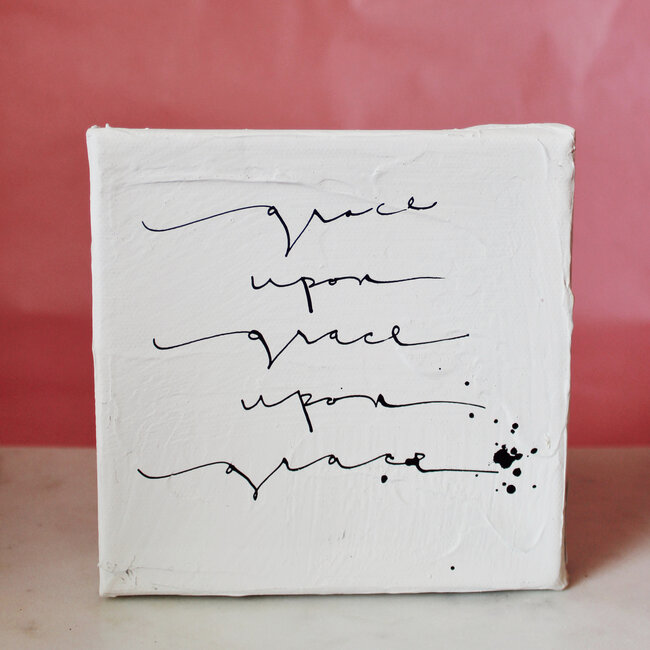 grace
upon
grace
upon
grace